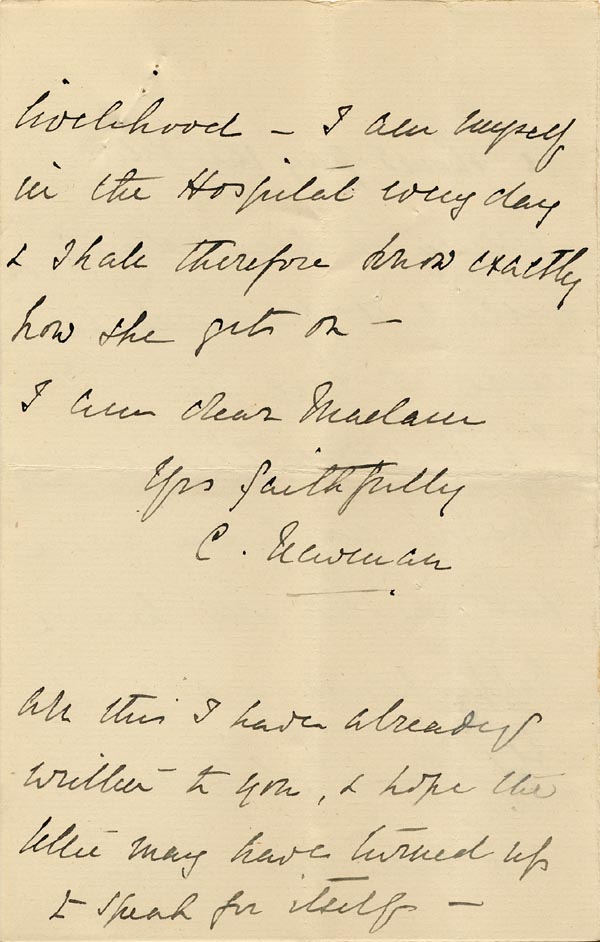 livelihood – I am myself
in the Hospital every day
& shall therefore know exactly
how she gets on –
I am dear Madam
Yrs faithfully
C. Newman
All this I have already
written to you, & hope the
letter may have turned up
to speak for itself –